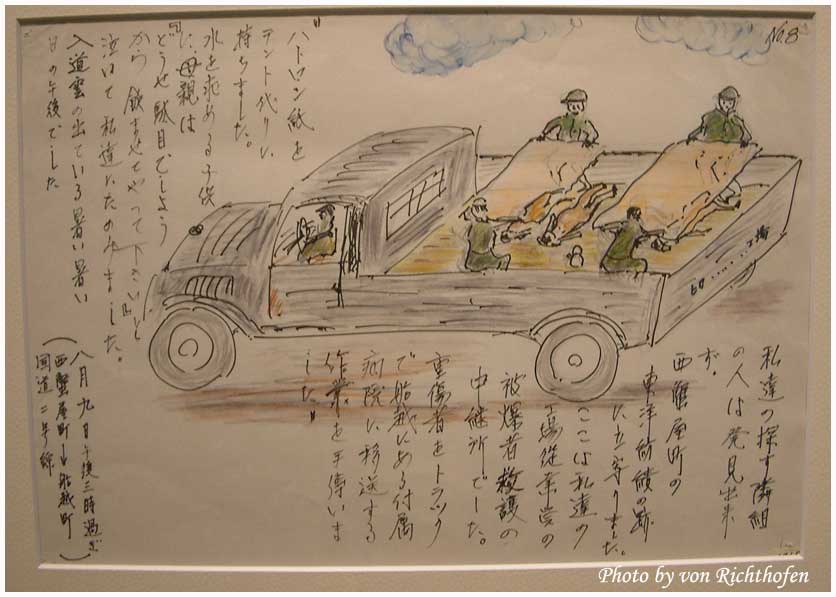 No.8
私達の探す隣組
の人は発見出来
ず。
西蟹屋町の
東洋紡績の跡
に立寄りました。
ここは私達の
工場従業員の
被爆者救護の
中継所でした。
重傷者をトラック
で船越にある付属
病院に移送する
作業を手伝いま
した"
"ハトロン紙を
テント代りに
持ちました。
水を求める子供
に母親は
『どうせ駄目でしょう
から飲ませてやって下さい』と
泣いて私達にたのみました。
入道雲の出ている暑い暑い
日の午後でした
(八月九日午後三時過ぎ
西蟹屋町→船越町
国道二号線)
工場
Photo by von Richthofen